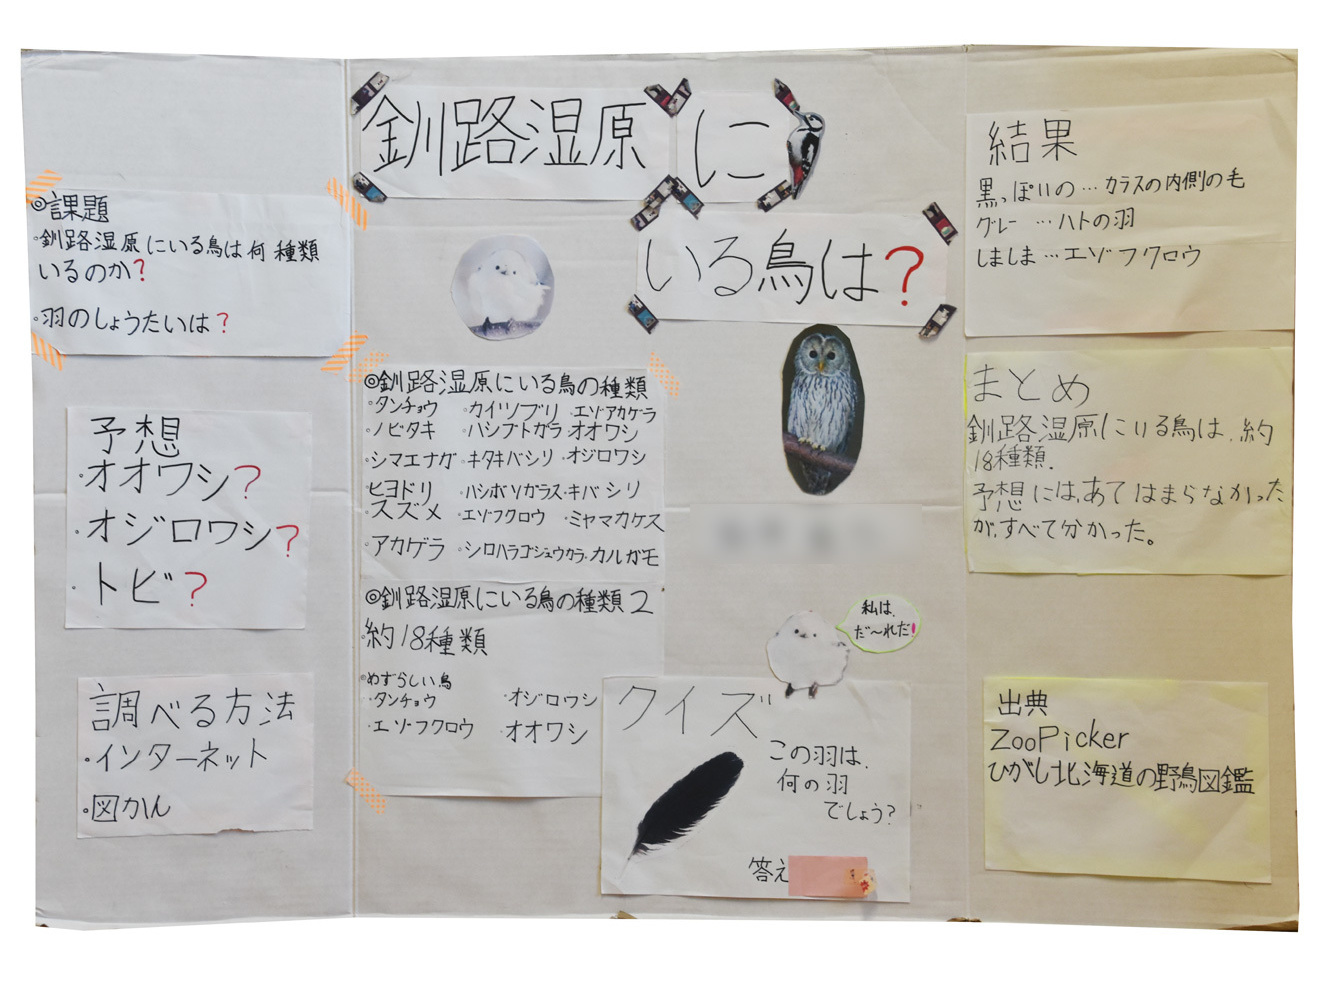 釧路湿原に
いる鳥は?
◎課題
・釧路湿原にいる鳥は何種類
いるのか?
・羽のしょうたいは?
予想
・オオワシ?
・オジロワシ?
・トビ?
調べる方法
・インターネット
・図かん
◎釧路湿原にいる鳥の種類
・タンチョウ ・カイツブリ ・エゾアカゲラ
・ノビタキ ・ハシブトガラ オオワシ
・シマエナガ ・キタキバシリ ・オジロワシ
ヒヨドリ ・ハシボソガラス・キバシリ
スズメ ・エゾフクロウ ・ミヤマカケス
・アカゲラ ・シロハラゴジュウカラ・カルガモ
◎釧路湿原にいる鳥の種類2
・約18種類
・めずらしい鳥
・タンチョウ ・オジロワシ
・エゾフクロウ ・オオワシ
私は、
だ〜れだ!
クイズ
この羽は、
何の羽
でしょう?
答え
結果
黒っぽいの…カラスの内側の毛
グレー …ハトの羽
しましま…エゾフクロウ
まとめ
釧路湿原にいる鳥は、約
18種類。
予想には、あてはまらなかった
が、すべて分かった。
出典
ZooPicker
ひがし北海道の野鳥図鑑